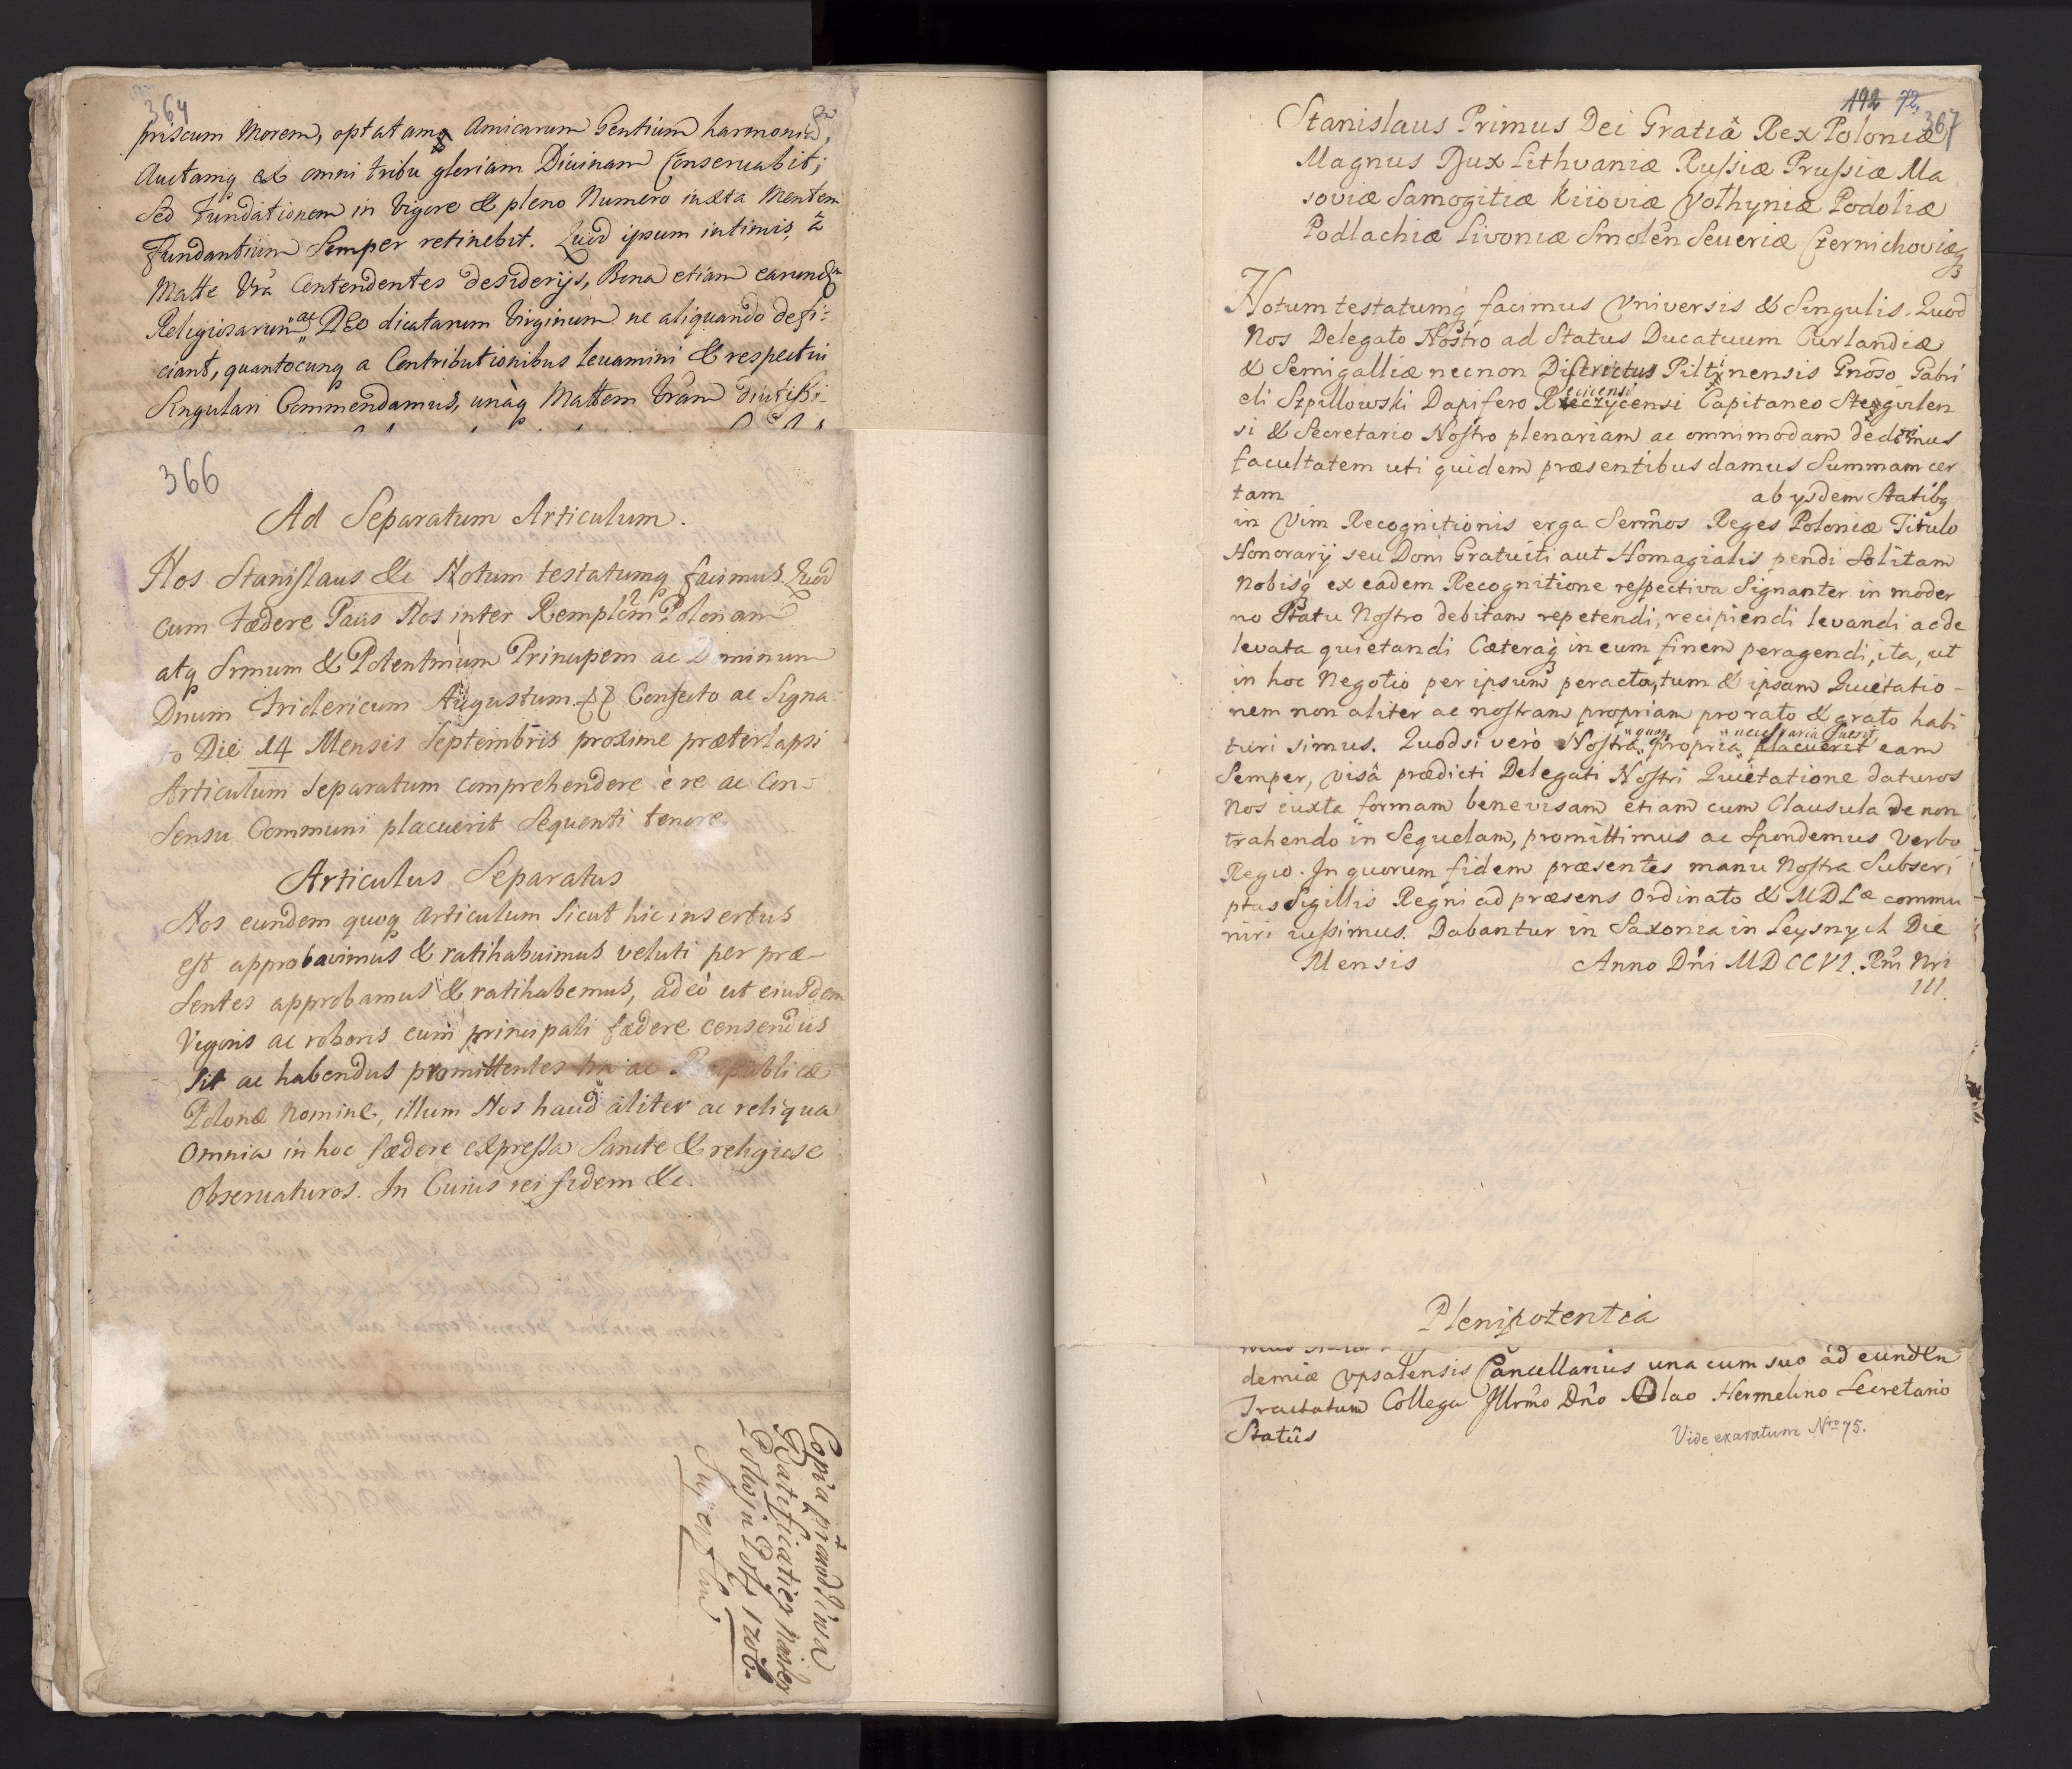 364
priscum Morem, optatamq Amicarum Gentium harmoniã,
Auctamq ex omni tribu gloriam Divinam Conservabit;
Sed Fundationem in vigore & pleno Numero iuxta Mentem
Fundantium Semper retinebit. Quod ipsum intimis, â
Matte Vrã Contendentes desiderijs, Bona etiam earundẽ
Religiosarum ac DEO dicatarum Virginum ne aliquando defi:
ciant, quantocunq a Contributionibus levamini & respectui
Singulari Commendamus, unàq Mattem Vrãm
366
Ad Separatum Articulum.
Nos Stanislaus &c Notum testatumq facimus. Quod
cum Fædere Pacis Nos inter Remplcm Polonam
atq Srmum & Potentmum Principem ac Dominum
Dnum Fridericum Augustum &c Confecto ac Signa
to Die 14 Mensis Septembris proxime præterlapsi
Articulum Separatum comprehendere è re ac Con-
sensu Communi placuerit Sequenti tenore
Articulus Separatus
Nos eundem quoq Articulum Sicut hic insertus
est approbavimus & ratihabuimus veluti per præ-
sentes approbamus & ratihabemus, adeò ut eiusdem
Vigoris ac roboris cum principali fædere censendus
sit ac habendus promittentes ac Reipublicæ
Polonæ Nomine, illum Nos haud aliter ac reliqua
Omnia in hoc fædere expressa Sancte & religiose
Observaturos. In Cuius rei fidem &c.
Copia
192 72. 367
Stanislaus Primus Dei Gratiâ Rex Poloniæ
Magnus Dux Lithvaniæ Russiæ Prussiæ Ma
soviæ Samogitiæ Kiioviæ Volhyniæ Podoliæ
Podlachiæ Livoniæ Smolẽn Severiæ Czernichoviæq
Notum testatumq facimus Vniversis & Singulis. Quod
Nos Delegato Nostro ad Status Ducatuum Curlandiæ
& Semigalliæ necnon Districtus Piltinensis Gnõso Gabri
ecicensi
eli Szpillowski Dapifero Rzeczycensi Capitaneo Stezgvilen
si & Secretario Nostro plenariam ac omnimodam dedimus
facultatem uti quidem præsentibus damus Summam cer
tam ab ysdem Statibq
in Vim Recognitionis erga Sermos Reges Poloniæ Titulo
Honorarij seu Doni Gratuiti aut Homagialis pendi Solitam
Nobisq ex eadem Recognitione respectiva Signanter in moder
no Statu Nostro debitam repetendi, recipiendi levandi ac de
levata quietandi Cæteraq in eum finem peragendi, ita, ut
in hoc Negotio per ipsum peracta, tum & ipsam Quietatio-
nem non aliter ac nostram propriam pro rato & grato habi
necessaria fuerit
turi simus. Quodsi verò Nostra propria placuerit eam
Semper, visâ prædicti Delegati Nostri Quietatione daturos
Nos iuxta formam bene visam etiam cum Clausula de non
trahendo in Sequelam, promittimus ac Spondemus Verbo
Regio. In quorum fidem præsentes manu Nostra Subscri
ptas Sigillis Regni ad præsens Ordinato & MDLæ commu
niri iussimus. Dabantur in Saxonia in Leysnych Die
Mensis Anno Dñi MDCCVI. Rñi Nri
III.
Plenipotentia
demiæ Vpsalensis Cancellarius una cum suo ad eundẽn
Tractatum Collega Jllrmo Dño Olao Hermelino Secretario
Statûs
Vide exaratum Nro 75.
Ratificatiey
1706.